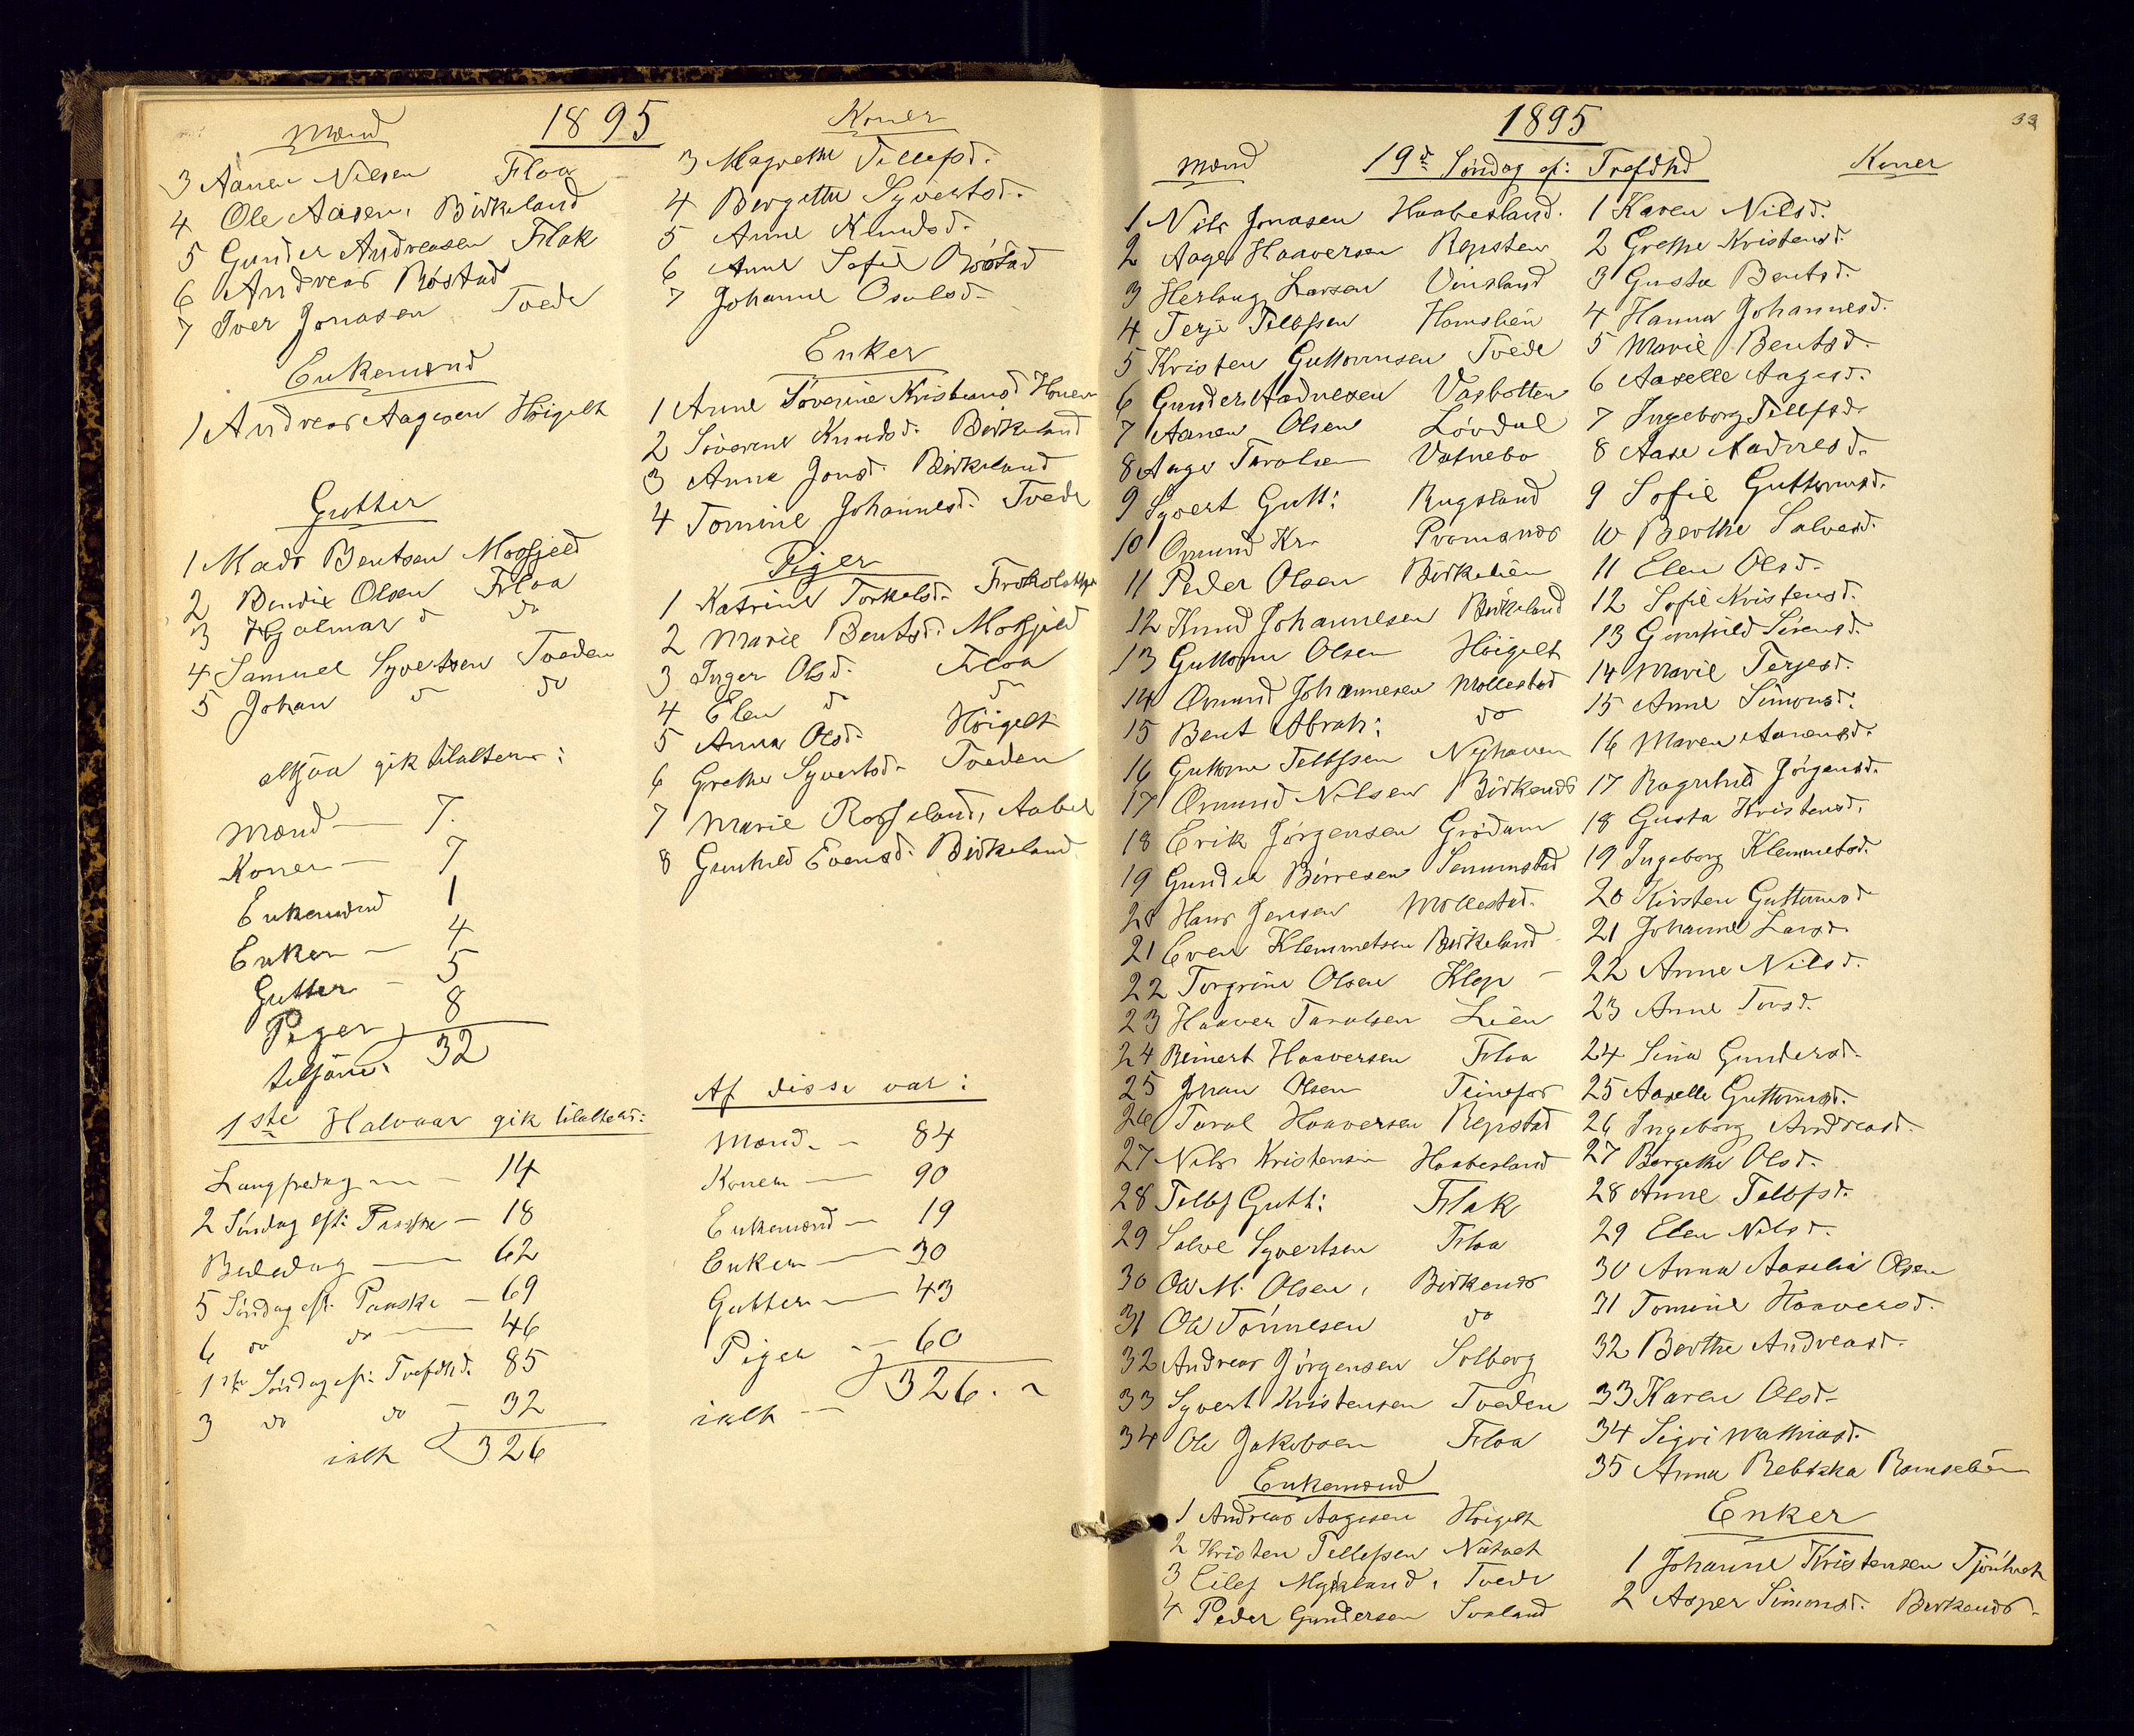 1895
Mænd
3 Aanen Nilsen Floa
4 Ole Aasen, Birkeland
5 Gunder Andreasen Flak
6 Andreas Røstad
7 Iver Jonasen Tvede
Enkemænd
1 Andreas Aagesen Høigelt
Gutter
1 Mads Bentsen Mosfjeld
2 Bendix Olsen Floa
3 Hjalmar do do
4 Samuel Syvertsen Tveden
5 Johan do do
altsaa gik tilalters:
Mænd — 7.
Koner — 7
Enkemænd 1
Enker — 4
Gutter — 5
Piger 8
tilsam. 32
1ste Halvaar gik tilalters:
Langfredag — 14
2 Søndag eft: Paaske — 18
Bededag — 62
5 Søndag eft: Paaske — 69
6 do do — 46
1ste Søndag eft: Trefdhd. 85
3 do do — 32
ialt 326
Koner
3 Magrethe Tellefsd.
4 Bergitte Syvertsd.
5 Anne Knudsd.
6 Anne Sofie Røstad
7 Johanne Osulsd.
Enker
1 Anne Søverine Kristiansd Honen
2 Søverine Knudsd. Birkeland
3 Anna Jonsd. Birkeland
4 Tomine Johannesd. Tvede
Piger
1 Katrine Torkelsd.
2 Marie Bentsd. Mosfjeld
3 Inger Olsd. Floa
4 Elen do do
5 Anna Olsd. Høigelt
6 Grethe Syvertsd. Tveden
7 Marie Rosseland, Aabel
8 Gunhild Evensd. Birkeland
Af disse var:
Mænd — 84
Koner — 90
Enkemænd — 19
Enker — 30
Gutter — 43
Piger — 60
ialt — 326.
33
1895
Mænd 19de Søndag ef: Trefdhd Koner
1 Nils Jonasen Haabesland.
2 Aage Haaversen Repsten
3 Herlaug Larsen Vinsland
4 Terje Tellefsen Homslien
5 Kristen Guttormsen Tvede
6 Gunder Aadnesen Vasbotten
7 Aanen Olsen Løvdal
8 Aage Taralsen Vatnebo
9 Syvert Gutt: Rugsland
10 Omund Kr.
11 Peder Olsen Birkelien
12 Knud Johannesen Birkeland
13 Guttorm Olsen Høigelt
14 Omund Johannesen Mollestad
15 Bent Abrah: do
16 Guttorm Tellefsen Nyhaven
17 Omund Nilsen Birkenæs
18 Erik Jørgensen Grødum
19 Gunder Børresen Senumstad
20 Hans Jensen Mollestad.
21 Even Klemmetsen Birkeland
22 Torgrim Olsen Klep
23 Haaver Taralsen Lien
24 Reinert Haaversen Floa
25 Johan Olsen Teinefos
26 Taral Haaversen Repstad
27 Nils Kristensen Haabesland
28 Tellef Gutt: Flak
29 Salve Syvertsen Floa
30 Ole M. Olsen, Birkenæs
31 Ole Tønnesen do
32 Andreas Jørgensen Solberg
33 Syvert Kristensen Tveden
34 Ole Jakobsen Floa
Enkemænd
1 Andreas Aagesen Høigelt
2 Kristen Tellefsen
3 Eilef Mykland, Tvede
4 Peder Gundersen Svaland
1 Karen Nilsd.
2 Grethe Kristensd.
3 Gusta Bentsd.
4 Hanna Johannesd.
5 Marie Bentsd.
6 Aaselle Aagesd.
7 Ingeborg Tellefsd.
8 Aase Aadnesd.
9 Sofie Guttormsd.
10 Berthe Salvesd.
11 Elen Olsd.
12 Sofie Kristensd.
13 Gunhild Sørensd.
14 Marie Terjesd.
15 Anne Simonsd.
16 Maren Aanensd.
17 Ragnhild Jørgensd.
18 Gusta Kristensd.
19 Ingeborg Klemmetsd.
20 Kirsten Guttormsd
21 Johanne Larsd.
22 Anne Nilsd.
23 Anne Torsd.
24 Sina Gundersd.
25 Aaselle Guttormsd.
26 Ingeborg Andreasd.
27 Bergethe Olsd.
28 Anne Tellefsd.
29 Elen Nilsd.
30 Anna Aaselia Olsen
31 Tomine Haaversd.
32 Berthe Andreasd.
33 Karen Olsd.
34 Sigri Mathiasd.
35 Anna Rebekka Ramselien
Enker
1 Johanne Kristensen
2 Asper Simonsd. Birkenæs.